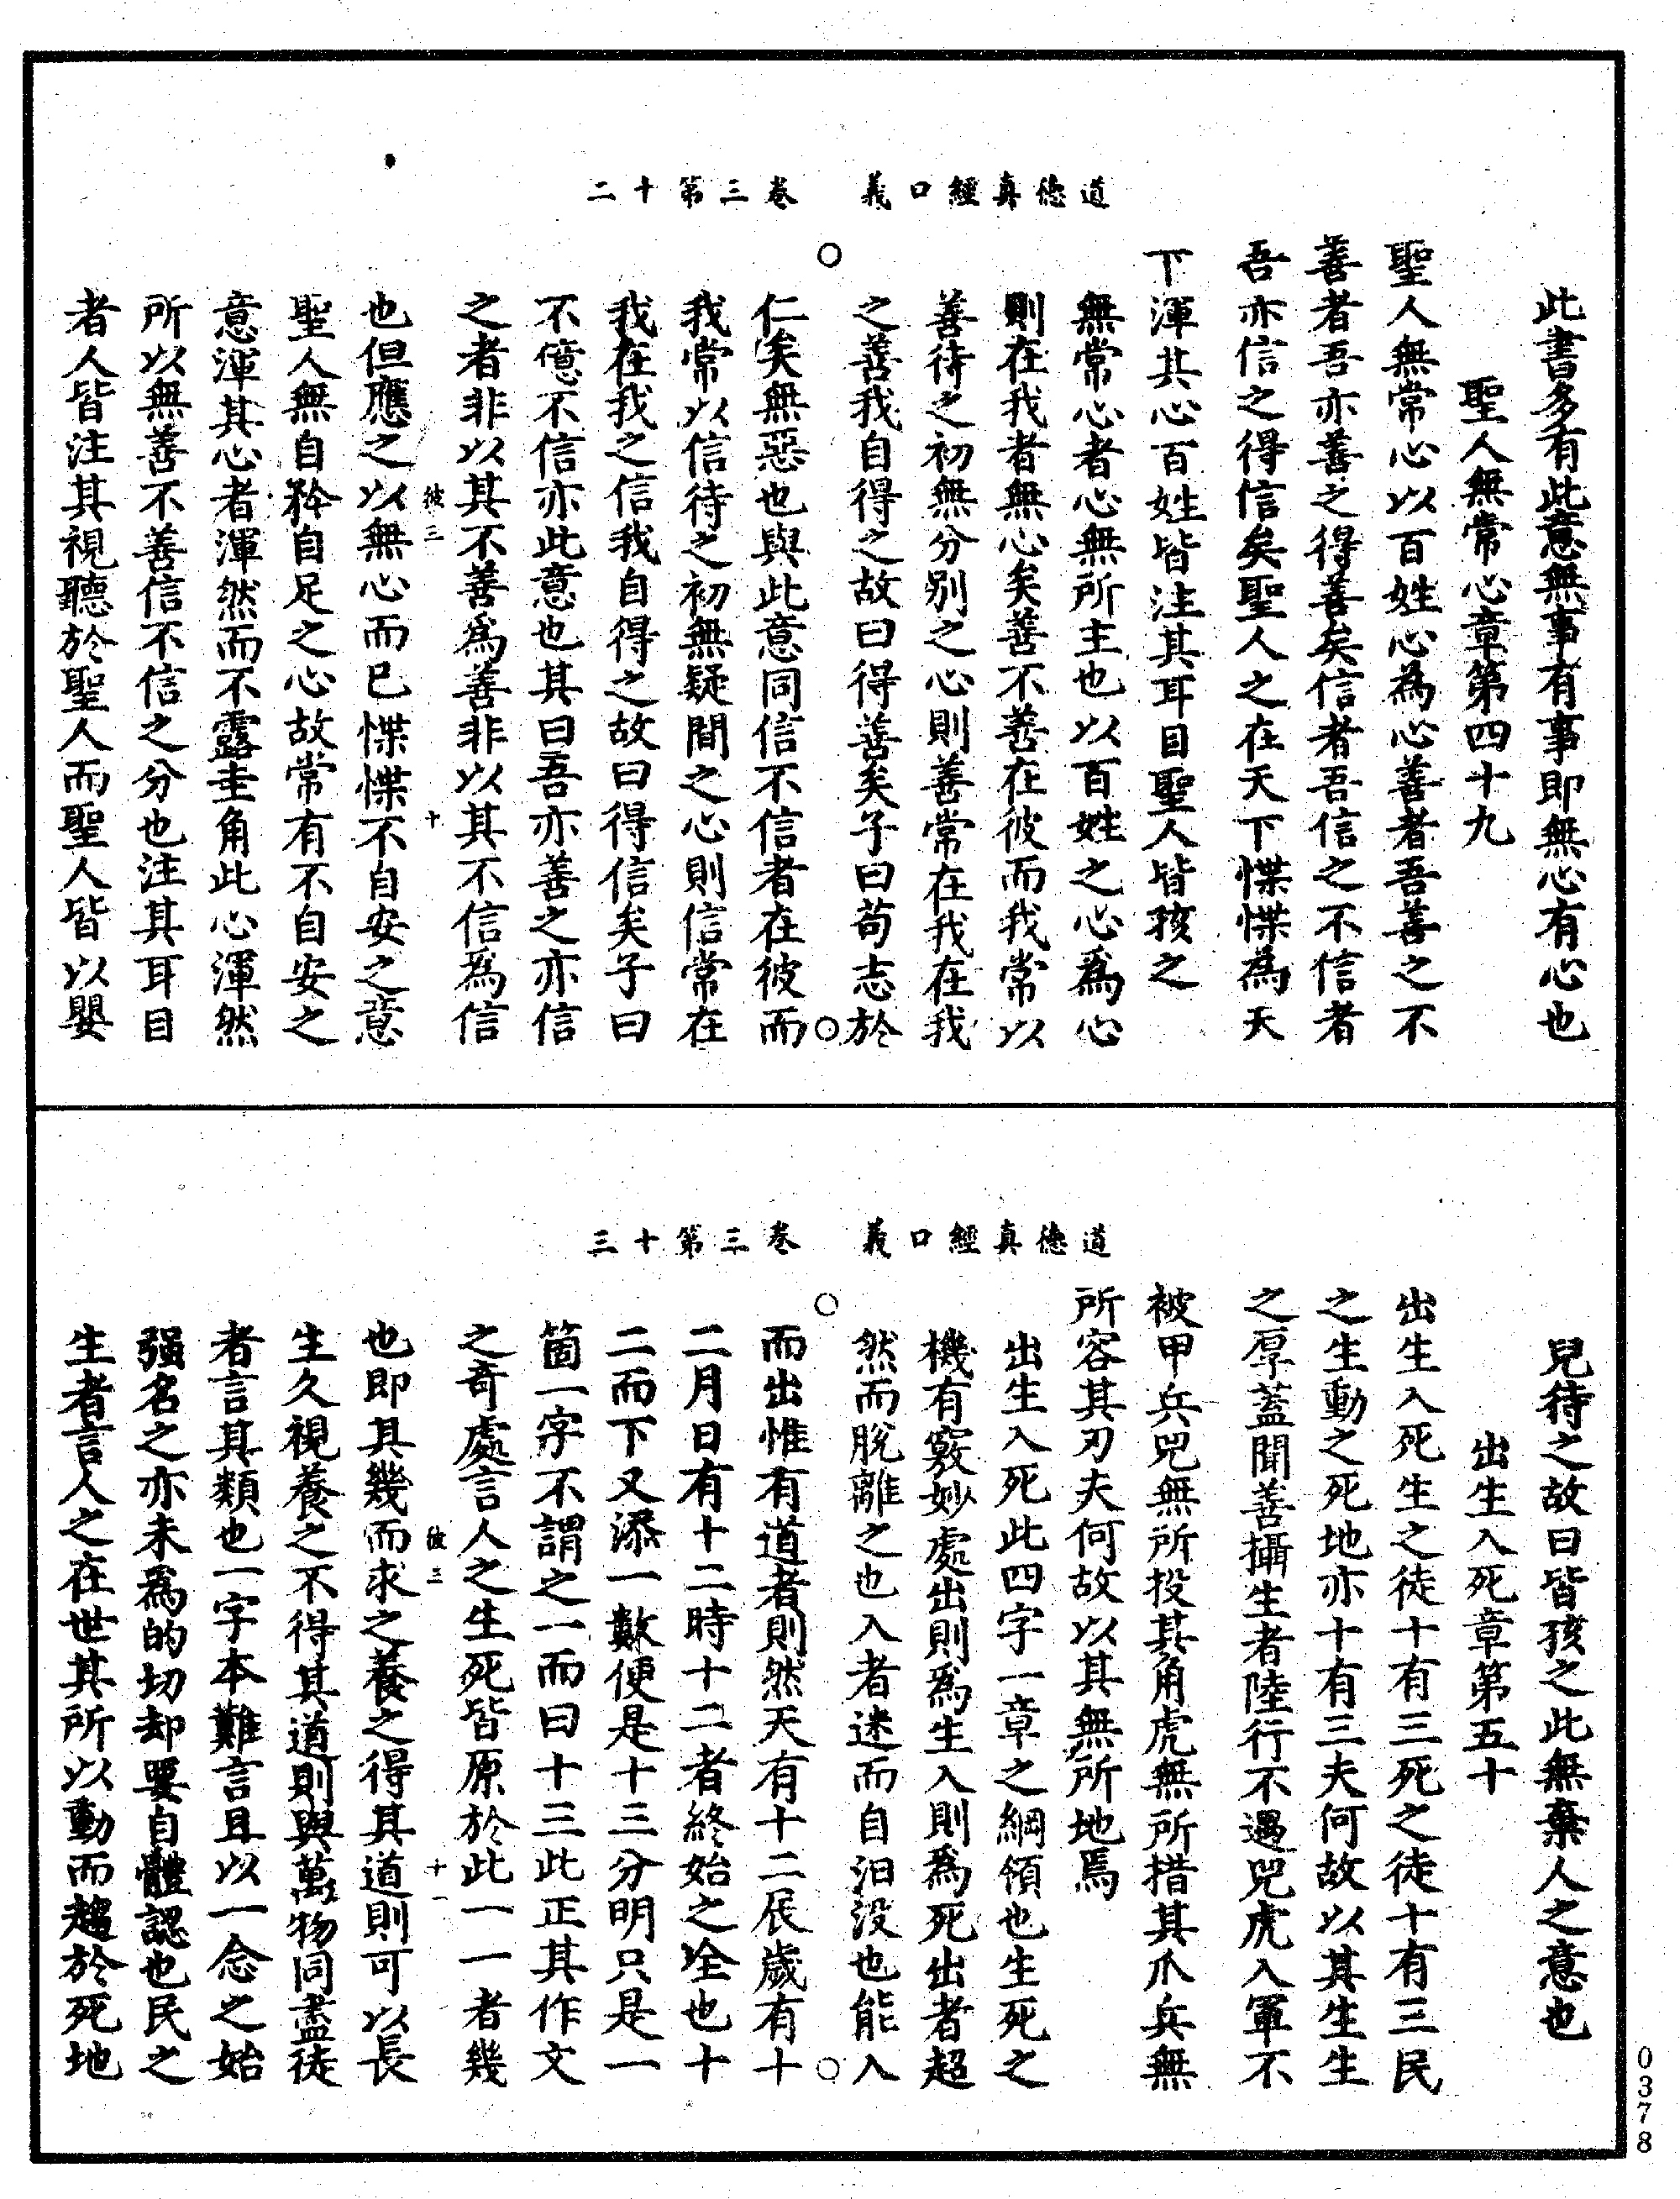 道德真經口義　卷三第十二
此書多有此意無事有事即無心有心也
聖人無常心章第四十九
聖人無常心以百姓心為心善者吾善之不
善者吾亦善之得善矣信者吾信之不信者
吾亦信之得信矣聖人之在天下惵惵為天
下渾其心百姓皆注其耳目聖人皆孩之
無常心者心無所主也以百姓之心爲心
則在我者無心矣善不善在彼而我常以
善待之初無分別之心則善常在我在我
之善我自得之故曰得善矣子曰苟志於
仁矣無惡也與此意同信不信者在彼而
我常以信待之初無疑間之心則信常在
我在我之信我自得之故曰得信矣子曰
不億不信亦此意也其曰吾亦善之亦信
之者非以其不善爲善非以其不信為信
彼三　十
也但應之以無心而已惵惵不自安之意
聖人無自矜自足之心故常有不自安之
意渾其心者渾然而不露圭角此心渾然
所以無善不善信不信之分也注其耳目
者人皆注其視聽於聖人而聖人皆以嬰
道德真經口義　卷三第十三
兒待之故曰皆孩之此無棄人之意也
出生入死章第五十
出生入死生之徒十有三死之徒十有三民
之生動之死地亦十有三夫何故以其生生
之厚蓋聞善攝生者陸行不遇兕虎入軍不
被甲兵兕無所投其角虎無所措其爪兵無
所容其刃夫何故以其無所地焉
出生入死此四字一章之綱領也生死之
機有竅妙處出則爲生入則爲死出者超
然而脫離之也入者迷而自汨沒也能入
而出惟有道者則然天有十二辰歲有十
二月日有十二時十二者終始之全也十
二而下又添一數便是十三分明只是一
箇一字不謂之一而曰十三此正其作文
之奇處言人之生死皆原於此一一者幾
彼三　十一
也即其幾而求之養之得其道則可以長
生久視養之不得其道則與萬物同盡徒
者言其類也一字本難言且以一念之始
强名之亦未爲的切却要自體認也民之
生者言人之在世其所以動而趨於死地
0378